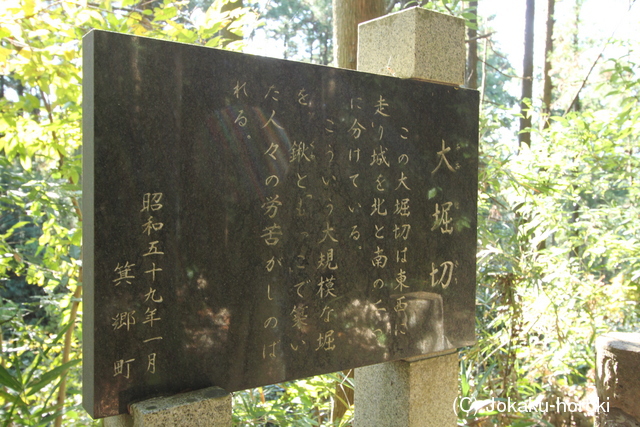 大堀切
この大堀切は東西に
走り城を北と南の二つ
に分けている。
こういう大規模な堀
を、鍬ともっこで築い
た人々の労苦がしのば
れる。
昭和五十九年一月
箕郷町
(C) Jokaku-horoki